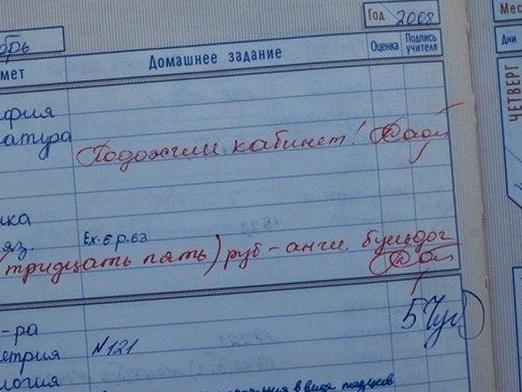 Год 2008
Мес
брь
мет Домашнее задание Оценка Подпись учителя
Дни
ЧЕТВЕРГ
фия
атура
Подожгли кабинет!
ка
яз. Ex. 6 p. 63
тридцать пять) руб - англ. бульдог
-ра 5
етрия №121
логия в виде